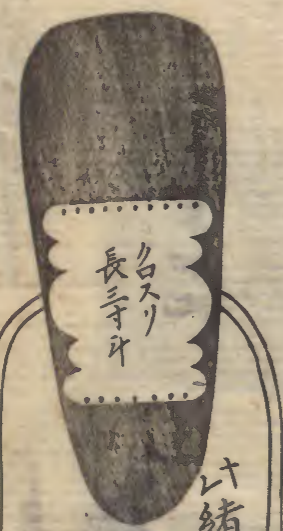 クロスリ
長三寸斗
緒